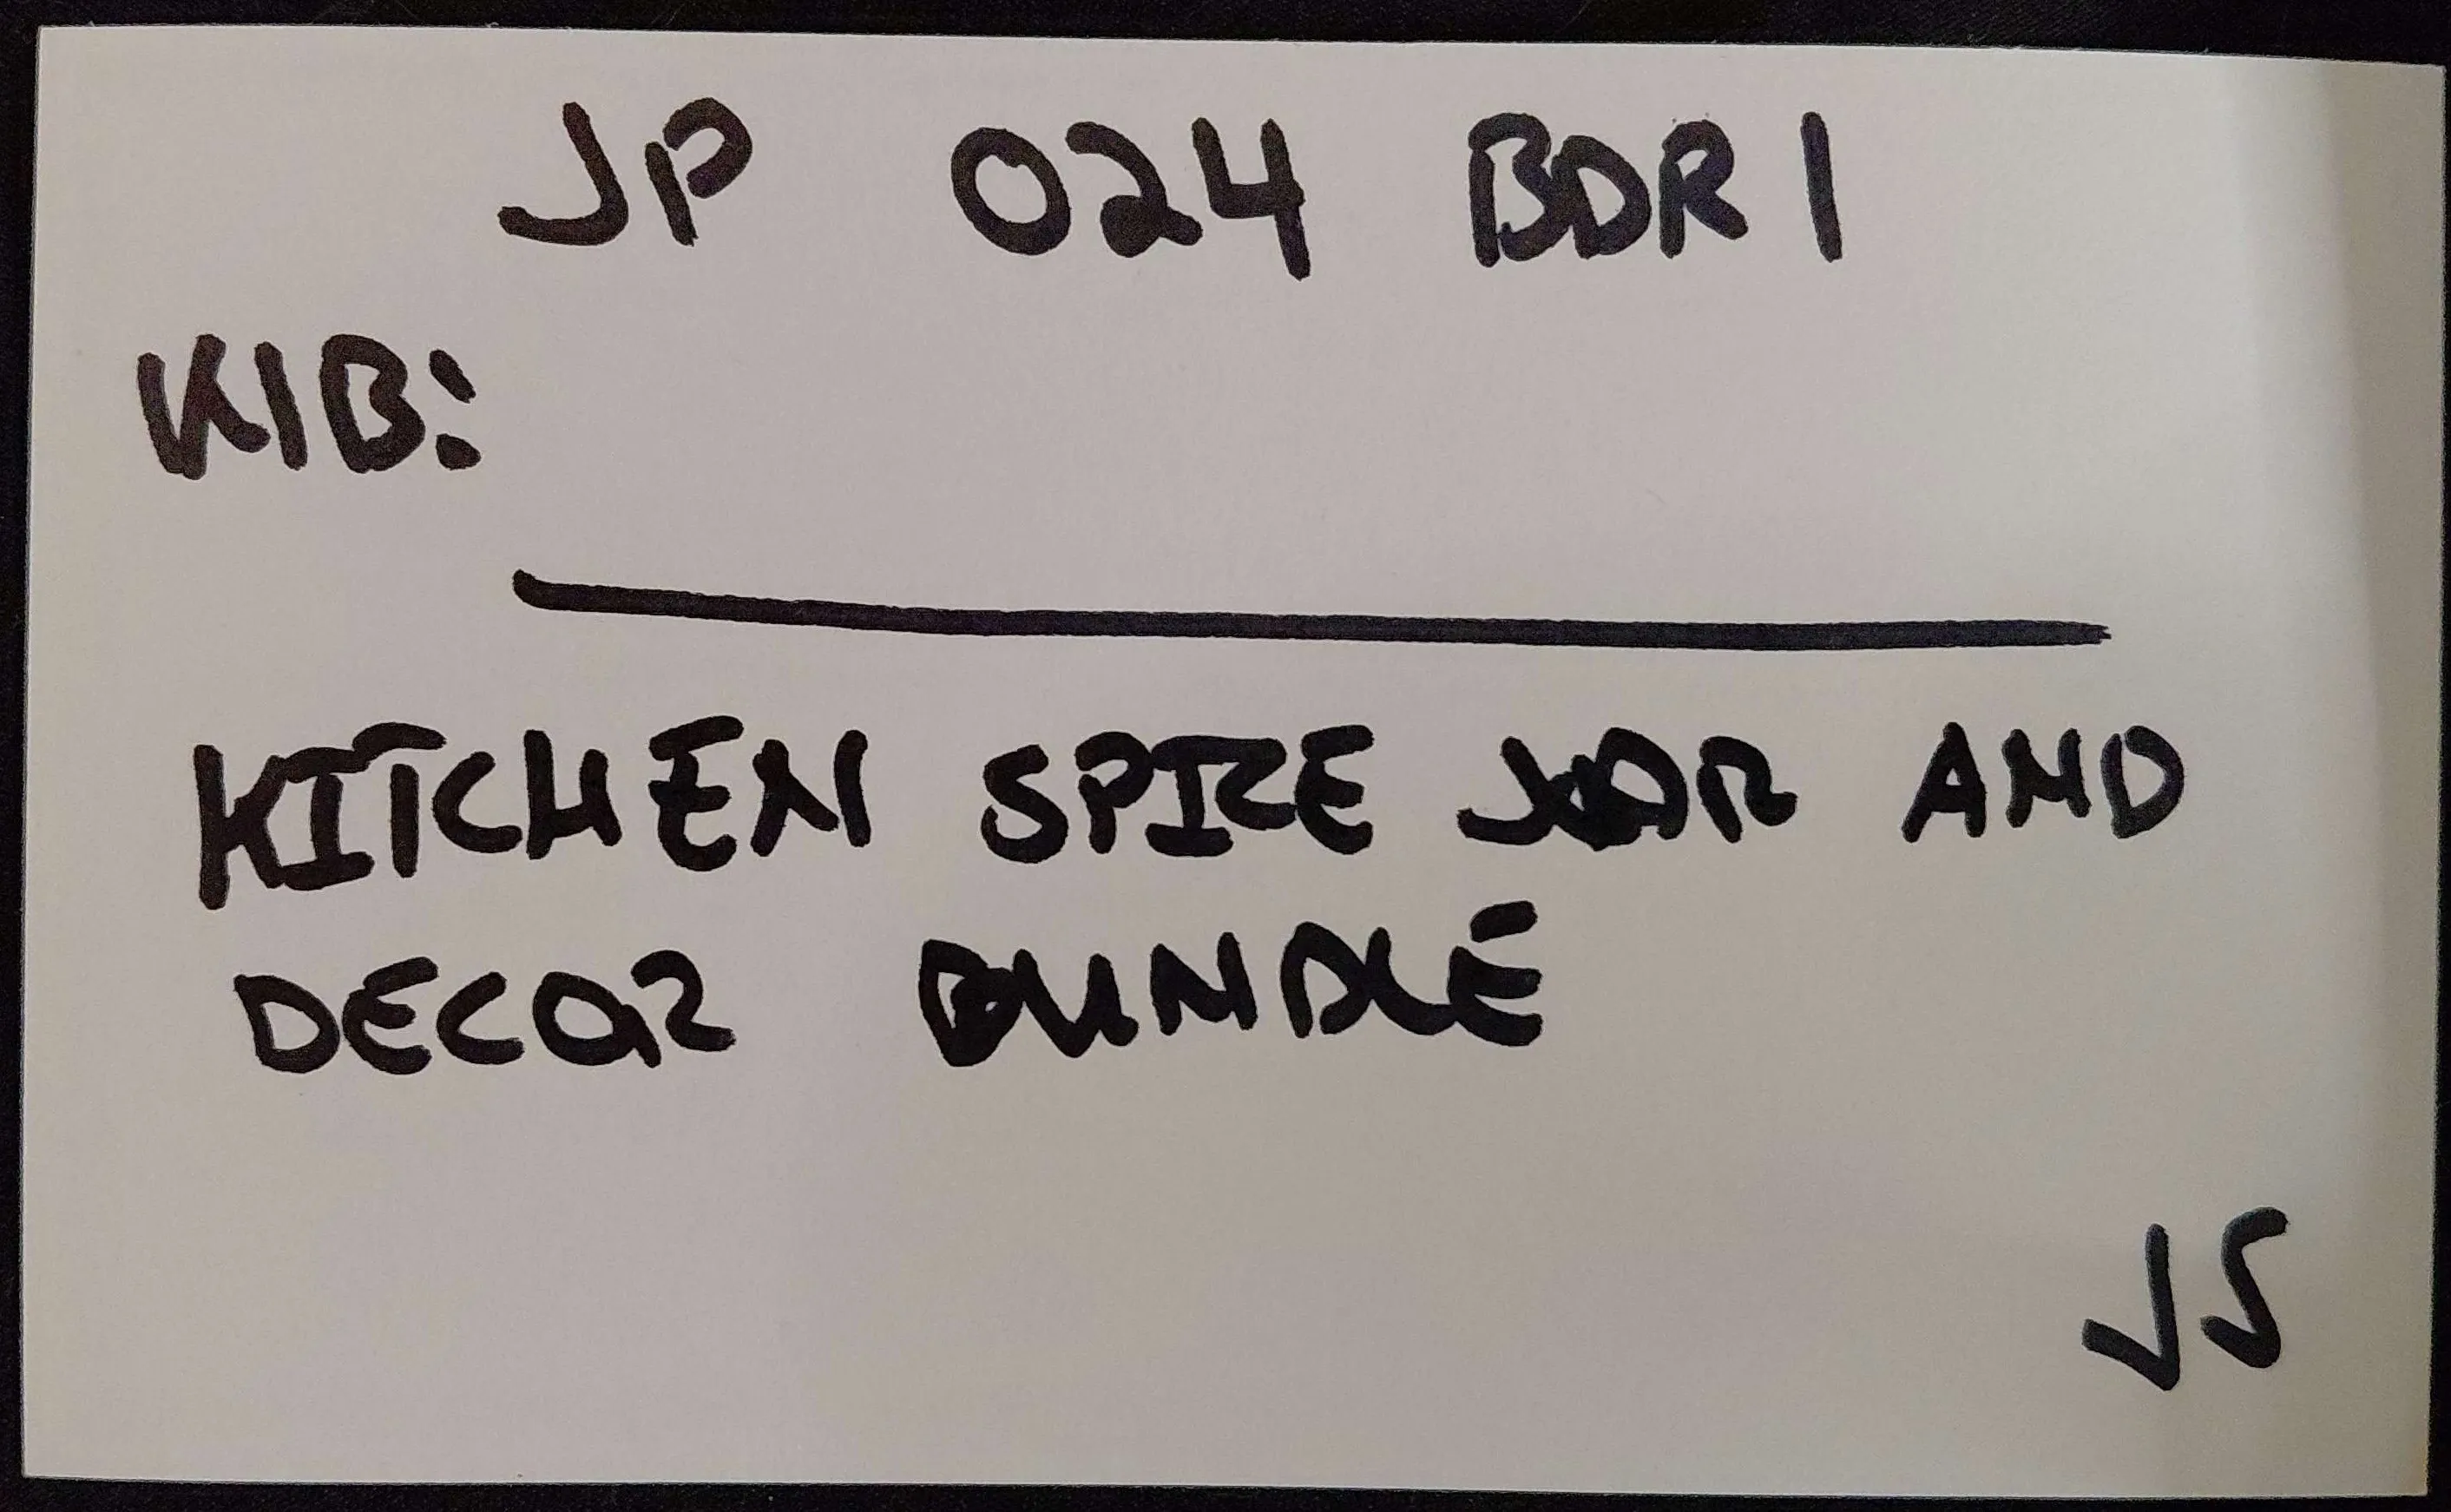 JP 024 BDR 1
KIB:
KITCHEN SPICE JAR AND
DECOR BUNDLE
JS